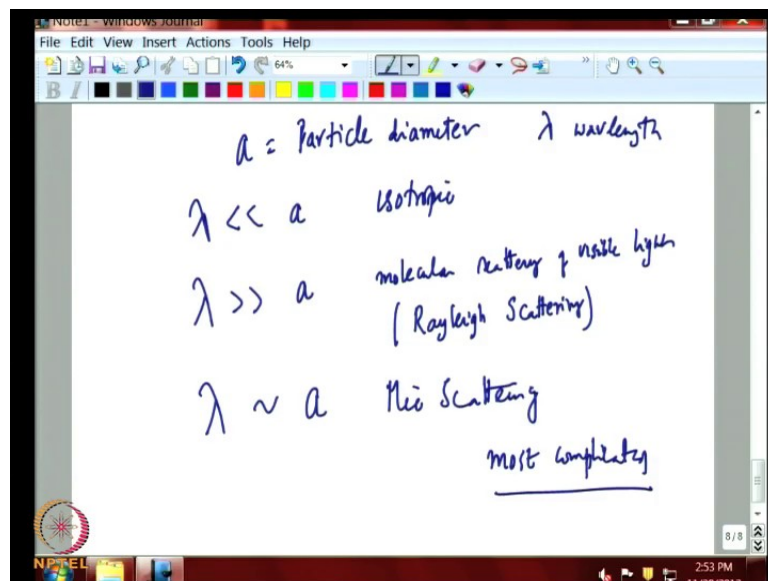 Note1 - Windows Journal
File Edit View Insert Actions Tools Help
64%
B I
a = Particle diameter λ wavlength
λ << a isotropic
λ >> a molecular scattering of visible light
(Rayleigh Scattering)
λ ~ a Mie Scattering
most complicated
8/8
NPTEL
2:53 PM